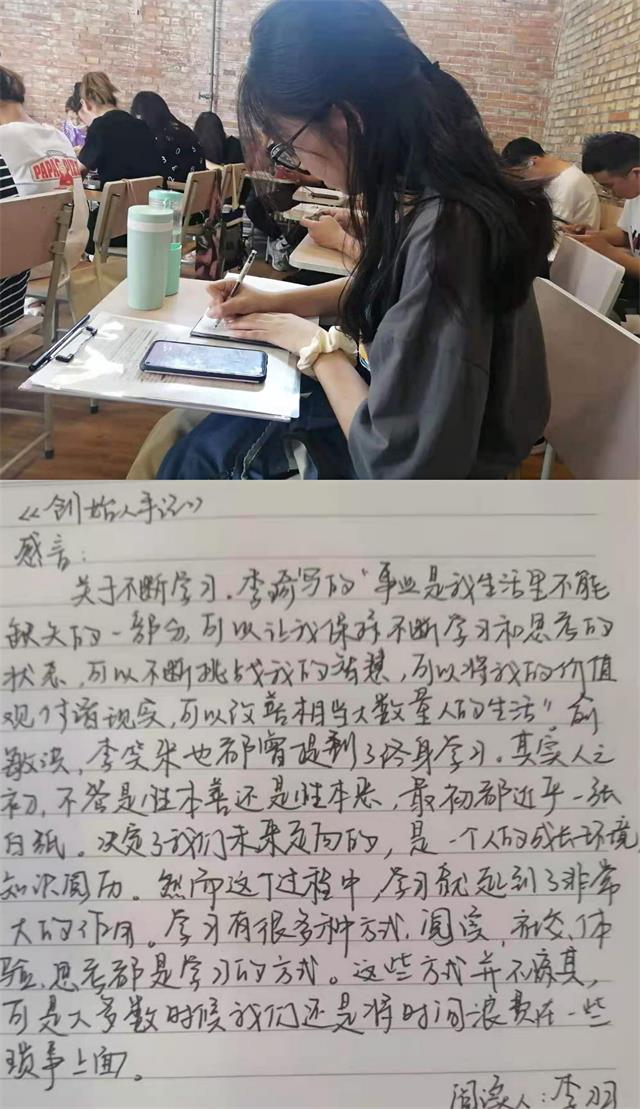 PAPAS
《创始人手记》
感言：
关于不断学习.李　写的"事业是我生活里不能
缺失的一部分,可以让我保持不断学习和思考的
状态,可以不断挑战我的　想,可以将我的价值
观付诸现实,可以改善相当大数量人的生活"俞
敏洪,李笑来也都曾提到了终身学习。其实人之
初,不管是性本善还是性本恶,最初都近乎一张
白纸。决定了我们未来走向的,是一个人的成长环境,
知识阅历。然而这个过程中,学习就起到了非常
大的作用。学习有很多种方式,阅读,社交,体
验,思考都是学习的方式。这些方式并不廉其,
可是大多数时候我们还是将时间浪费在一些
琐事上面。
阅读人:李羽